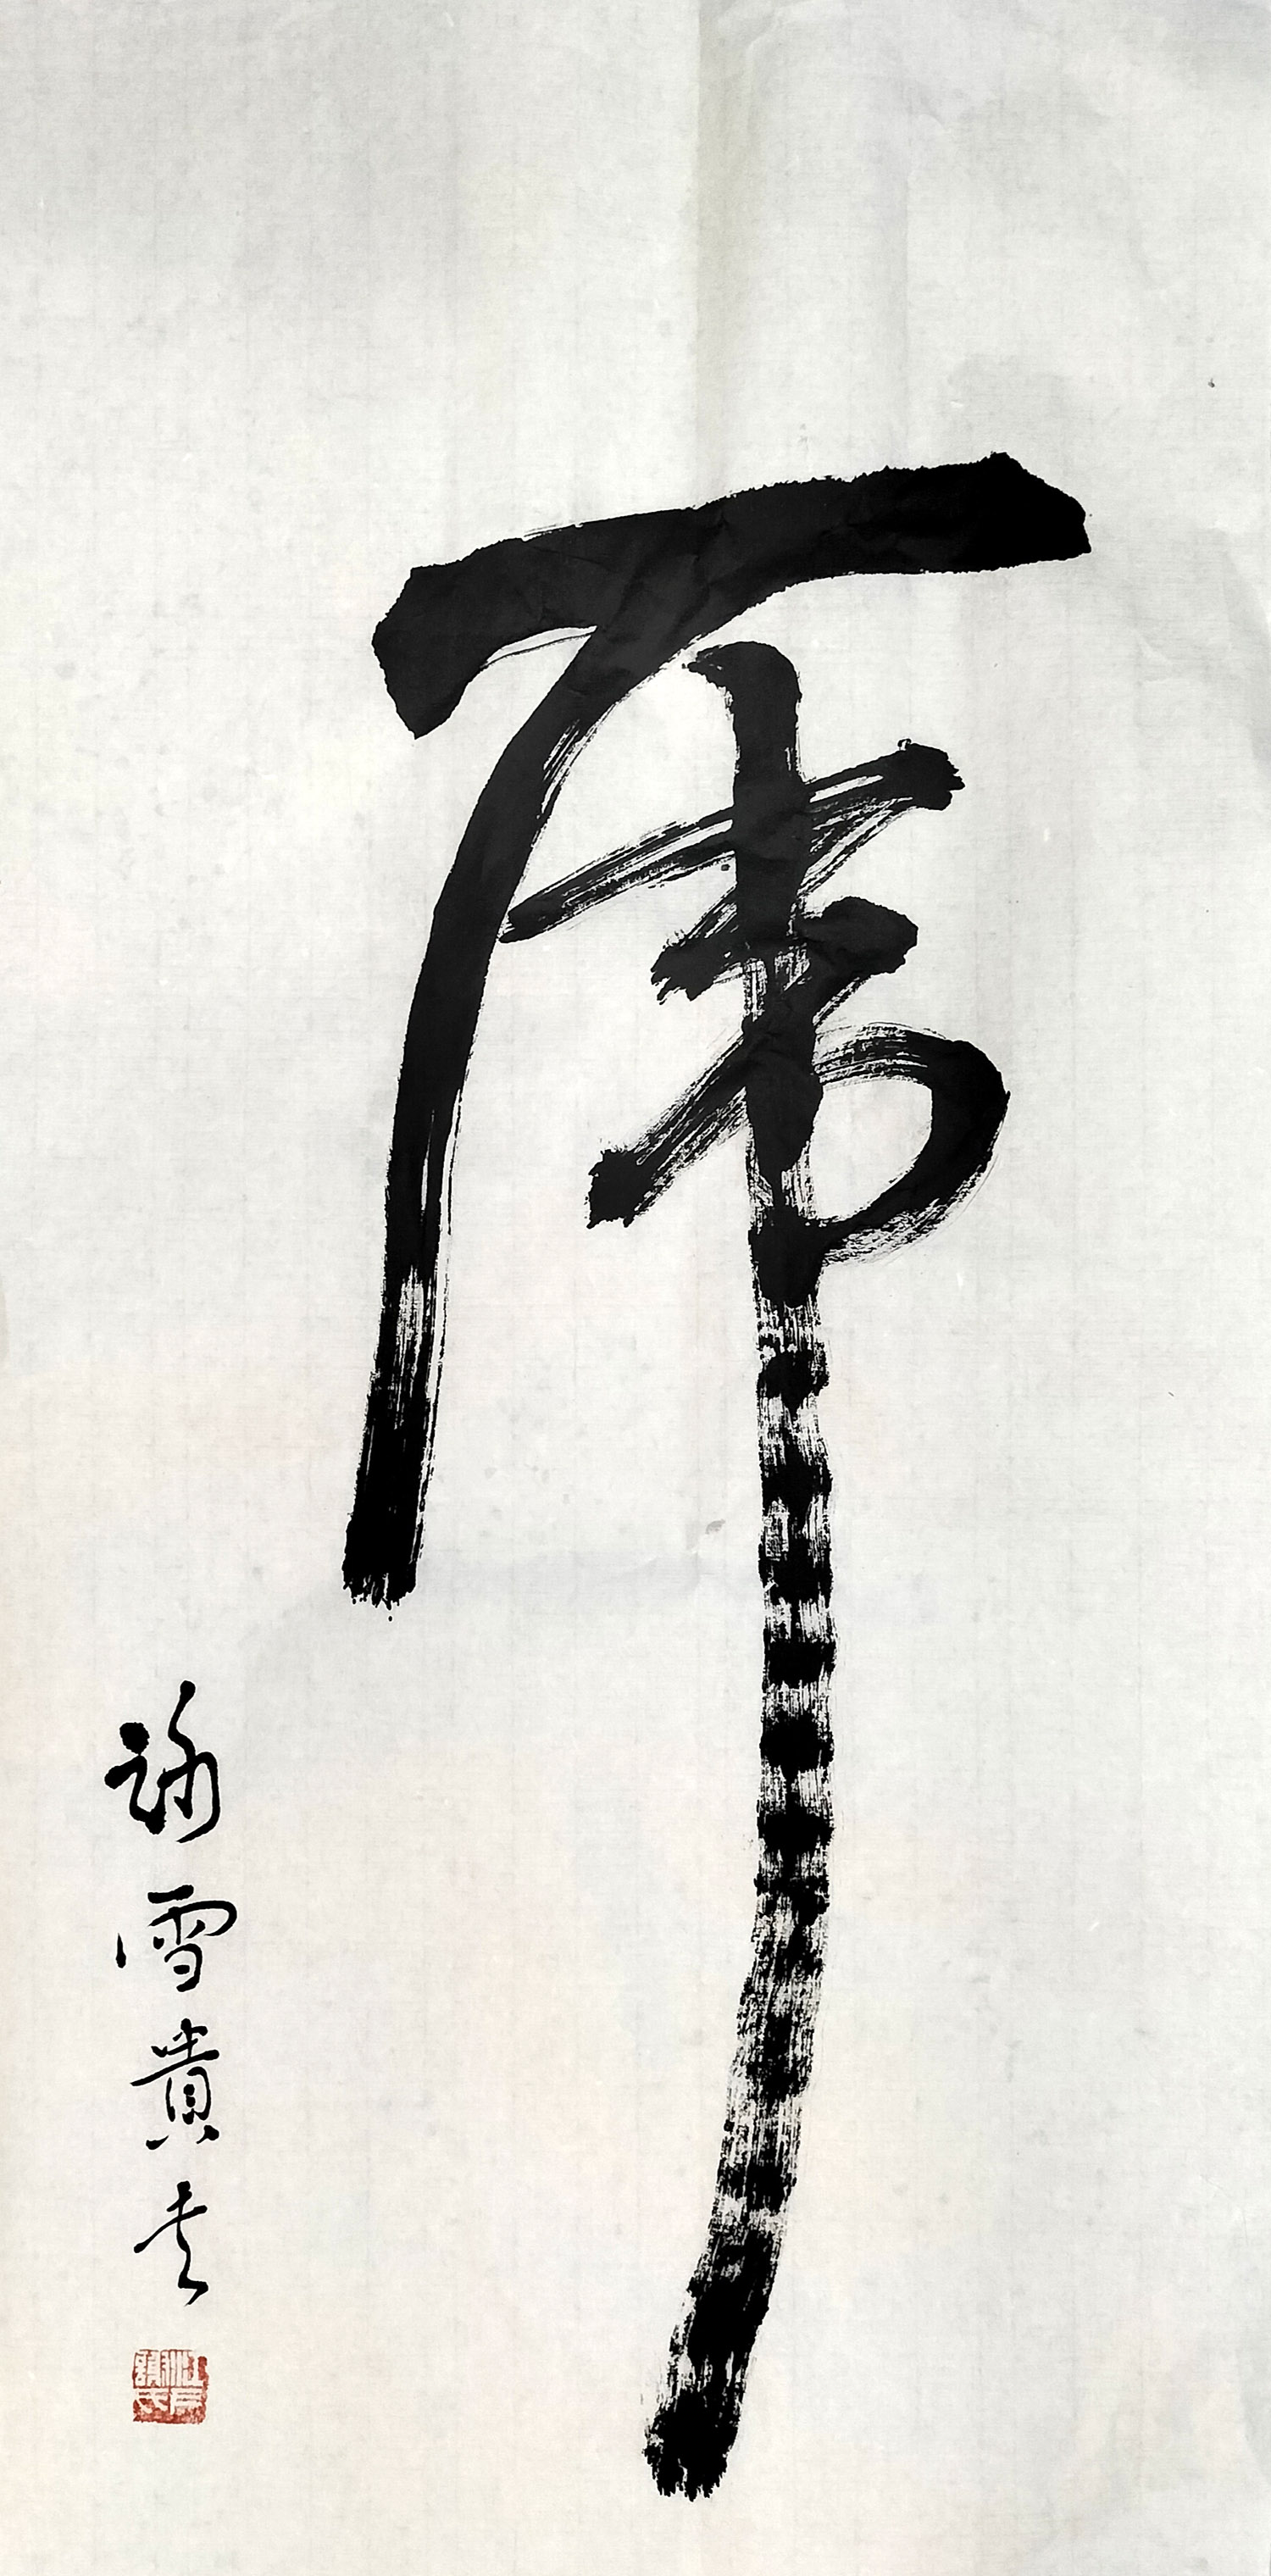 虎
詠雪貴夫